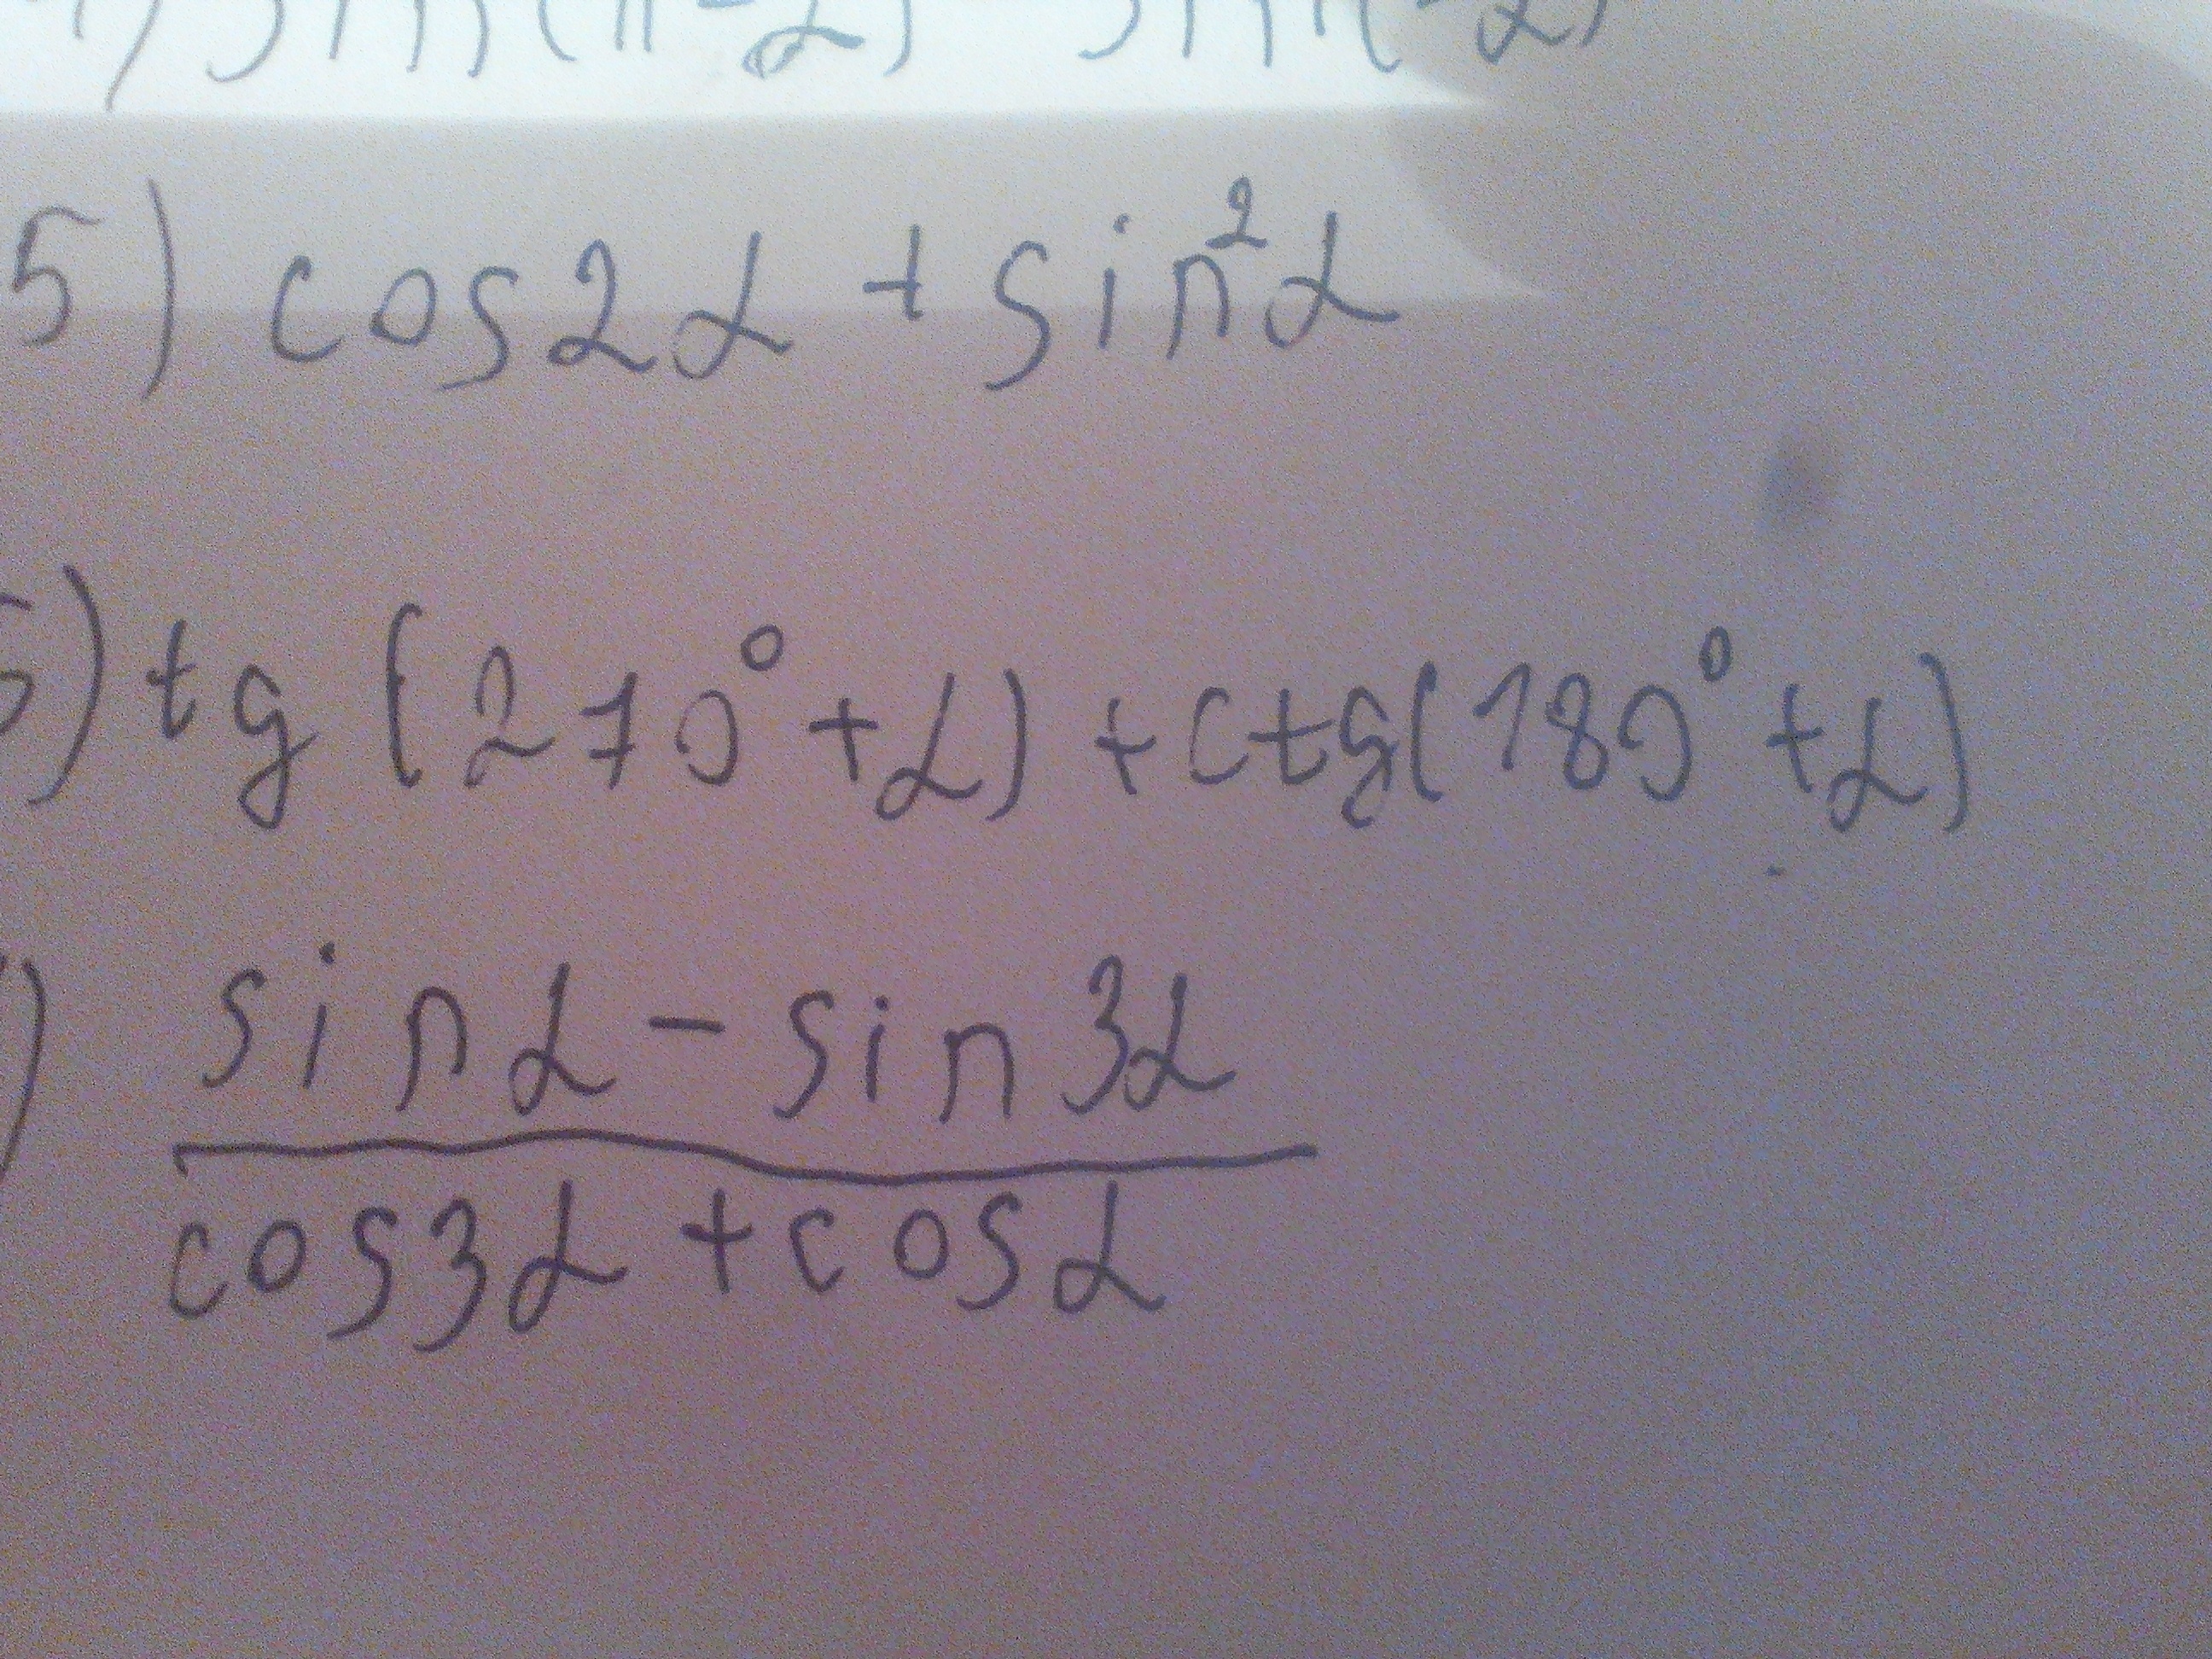 ) sin(π-α) sin(-α)
5) cos2α + sin²α
) tg (270° + α) + ctg(180° + α)
) sinα - sin3α
cos3α + cosα